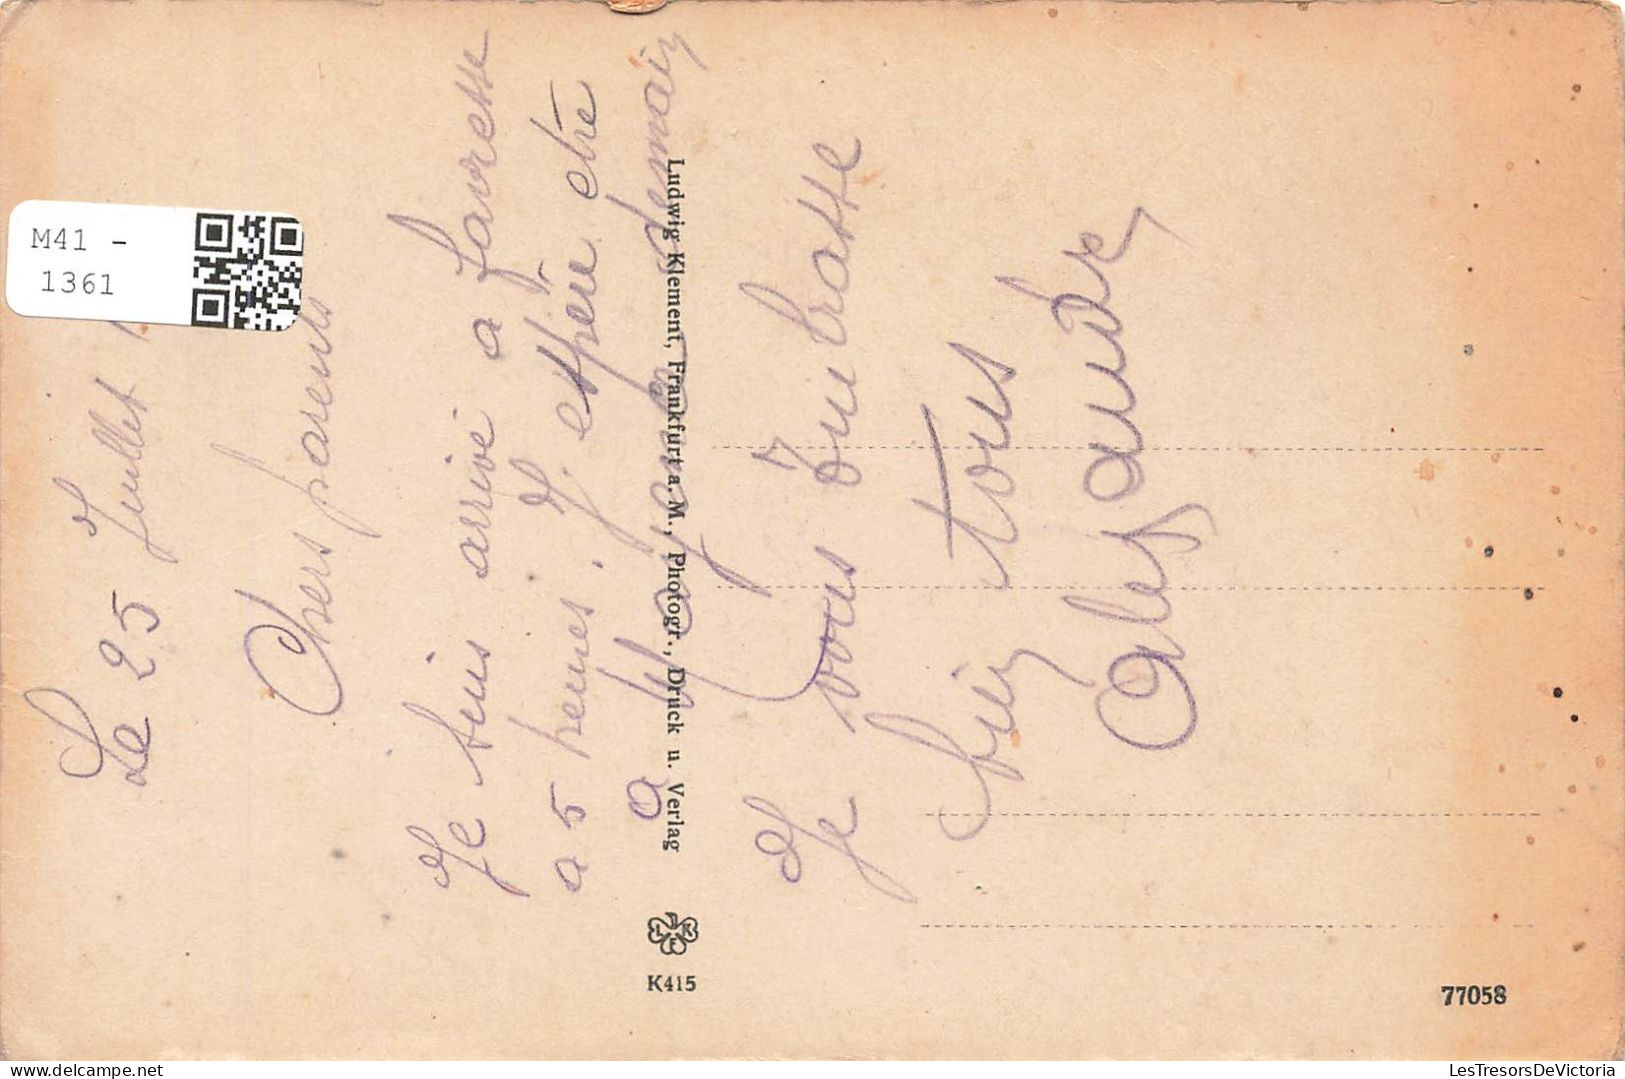 Le 25 Juillet
Chers parents
Je suis arrivé a favresse
a 5 heures. J'espère etre
a demain
Je vous embrasse
bien tous
Alexandre
Ludwig Klement, Frankfurt a. M., Photogr., Druck u. Verlag
K415
77058
M41 -
1361
LesTresorsDeVictoria